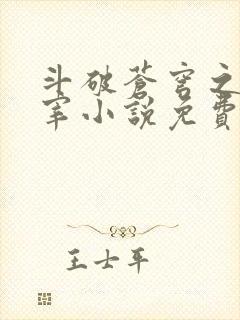 斗破蒼穹之
宰小說免費
王士平